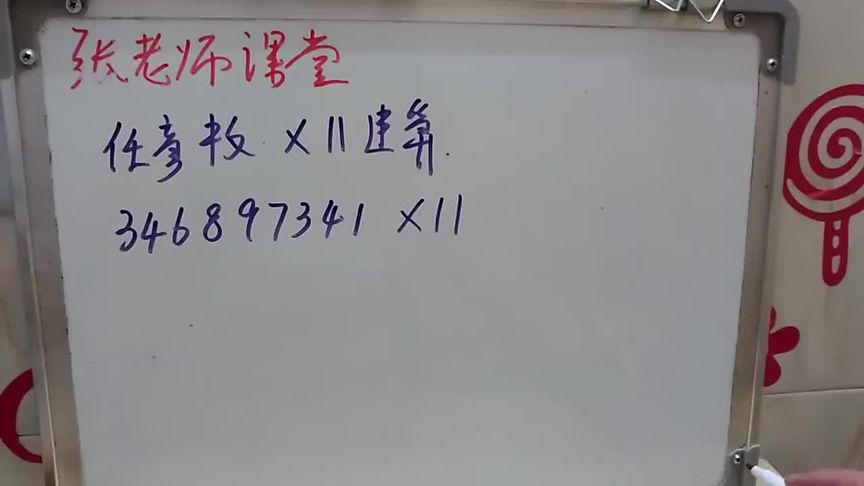 张老师课堂
任意数×11速算.
346897341×11